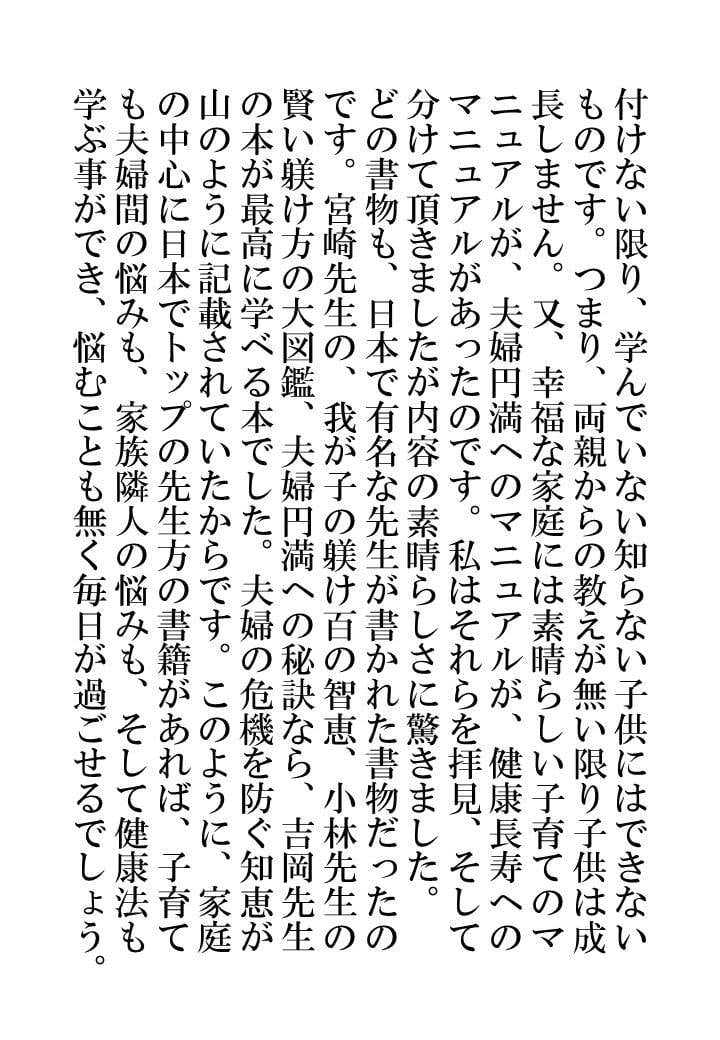 付けない限り、学んでいない知らない子供にはできない
ものです。つまり、両親からの教えが無い限り子供は成
長しません。又、幸福な家庭には素晴らしい子育てのマ
ニュアルが、夫婦円満へのマニュアルが、健康長寿への
マニュアルがあったのです。私はそれらを拝見、そして
分けて頂きましたが内容の素晴らしさに驚きました。
どの書物も、日本で有名な先生が書かれた書物だったの
です。宮崎先生の、我が子の躾け百の智恵、小林先生の
賢い躾け方の大図鑑、夫婦円満への秘訣なら、吉岡先生
の本が最高に学べる本でした。夫婦の危機を防ぐ知恵が
山のように記載されていたからです。このように、家庭
の中心に日本でトップの先生方の書籍があれば、子育て
も夫婦間の悩みも、家族隣人の悩みも、そして健康法も
学ぶ事ができ、悩むことも無く毎日が過ごせるでしょう。